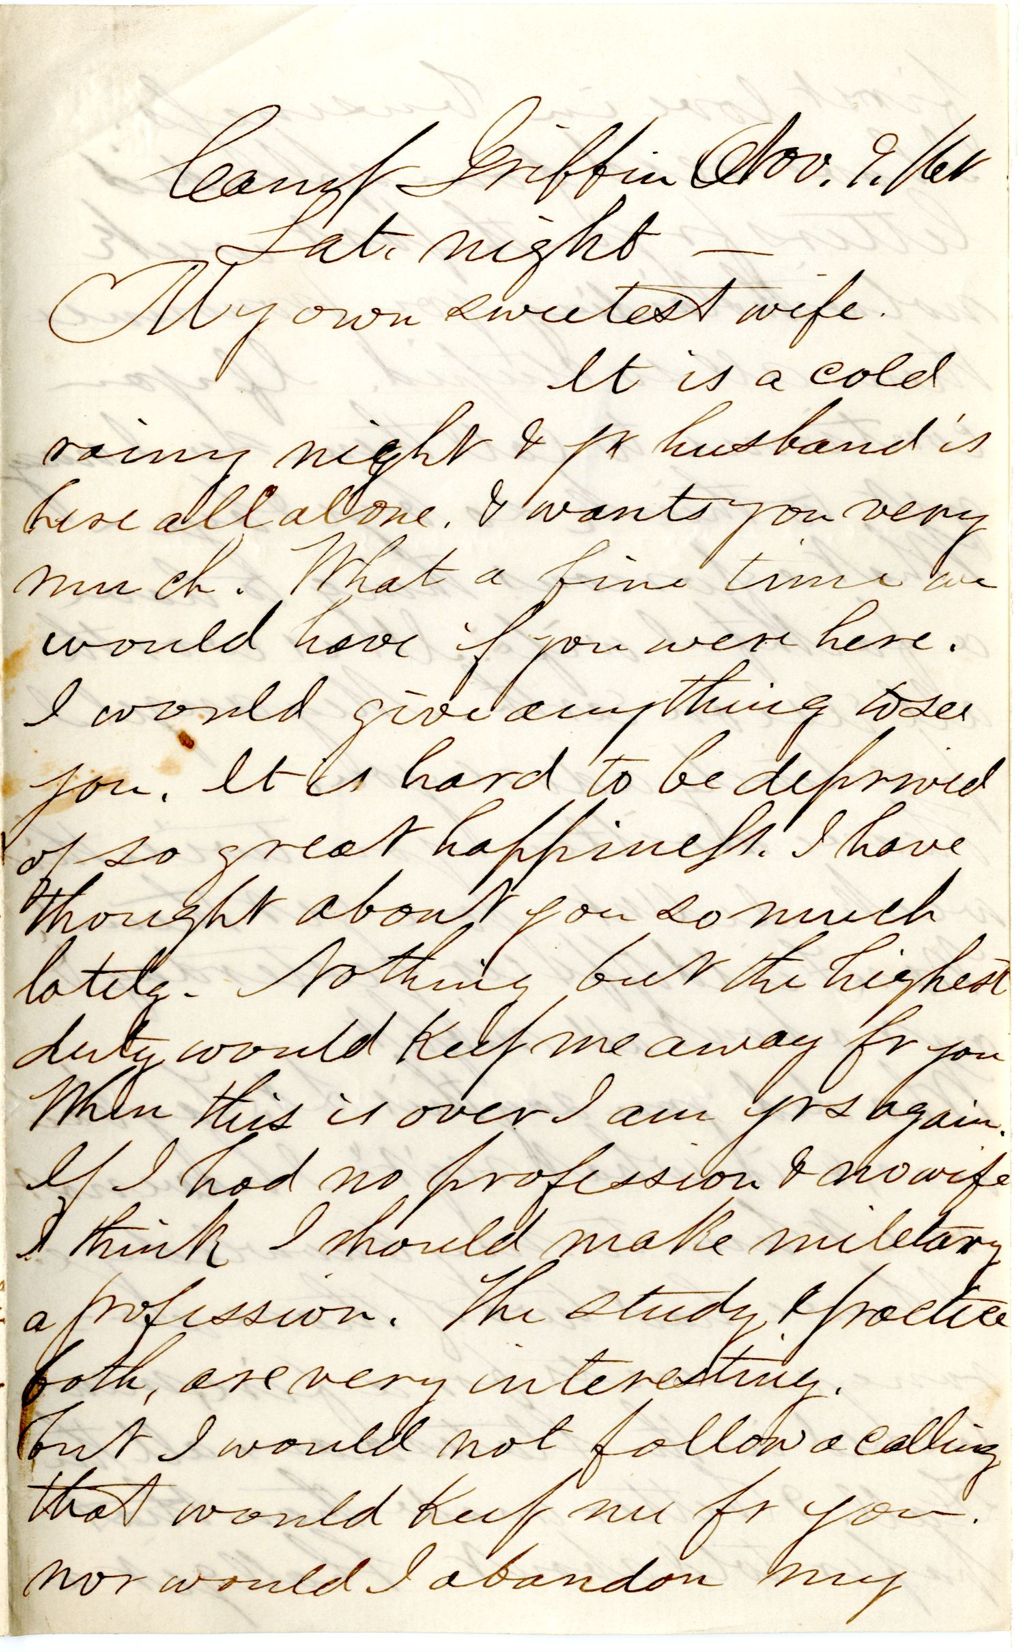 Camp Griffin Nov. 9. /61
Sat. night —
My own sweetest wife.
It is a cold
rainy night & yr husband is
here all alone. & wants you very
much. What a fine time we
would have if you were here.
I would give anything to see
you. It is hard to be deprived
of so great happiness. I have
thought about you so much
lately. Nothing but the highest
duty would keep me away fr you
When this is over I am yrs again.
If I had no profession & no wife
I think I should make military
a profession. The study & practice
both, are very interesting.
but I would not follow a calling
that would keep me fr you.
nor would I abandon my